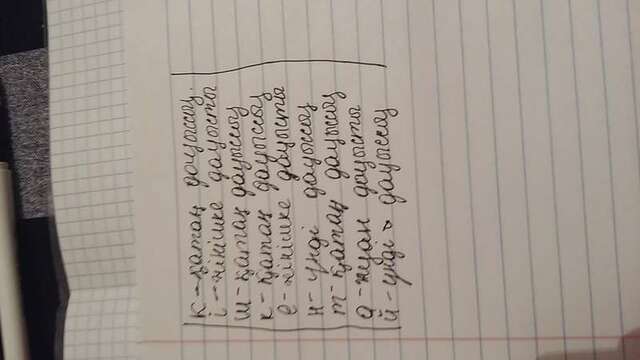 к - қатаң дауыссыз.
і - жіңішке дауысты
ш - қатаң дауыссыз
к - қатаң дауыссыз
е - жіңішке дауысты
н - үнді дауыссыз
т - қатаң дауыссыз
а - жуан дауысты
й - үнді дауыссыз